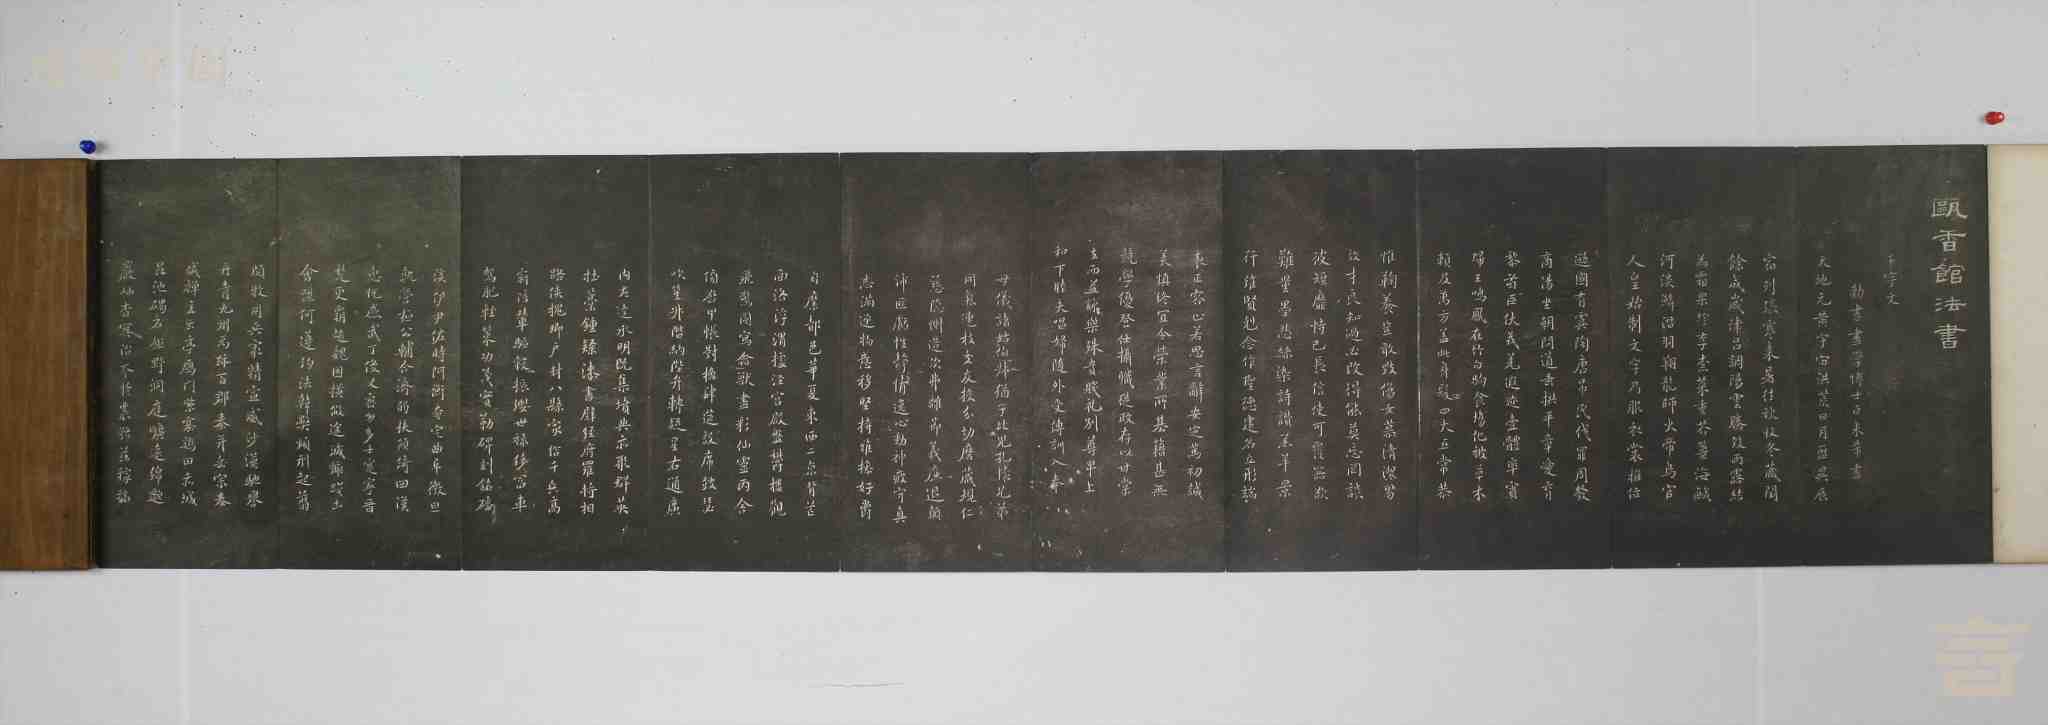 甌香館法書
千字文
勅書畫學博士臣米芾書
天地元黄宇宙洪荒日月盈昃辰
宿列張寒來暑往秋收冬藏閏
餘成歲律吕調陽雲騰致雨露結
為霜果珍李柰菜重芥薑海鹹
河淡鱗潛羽翔龍師火帝鳥官
人皇始制文字乃服衣裳推位
遜國有虞陶唐弔民伐罪周發
商湯坐朝問道垂拱平章愛育
黎首臣伏羌遐邇壹體率賓
歸王鳴鳳在竹白駒食場化被草木
賴及萬方蓋此身髮四大五常恭
惟鞠養豈敢毀傷女慕清潔男
效才良知過必改得能莫忘罔談
彼短靡恃己長信使可覆器欲
難量墨悲絲染詩讚羔羊景
行維賢尅念作聖德建名立形端
表正容止若思言辭安定篤初誠
美慎終宜令榮業所基籍甚無
竟學優登仕攝職從政存以甘棠
去而益詠樂殊貴賤礼別尊卑上
和下睦夫唱婦隨外受傅訓入奉
母儀諸姑伯叔猶子比兒孔懷兄弟
同氣連枝交友投分切磨箴規仁
慈隱惻造次弗離節義廉退顛
沛匪虧性靜情逸心動神疲守真
志滿逐物意移堅持雅操好爵
自縻都邑華夏東西二京背芒
面洛浮渭據涇宮殿盤鬱樓觀
飛驚圖寫禽獸畫彩仙靈丙舍
傍啟甲帳對楹肆筵設席鼓瑟
吹笙升階納陛弁轉疑星右通廣
内左達承明既集墳典亦聚群英
杜稾鍾隸漆書壁經府羅將相
路俠槐卿户封八縣家給千兵高
冠陪輦驅轂振纓世祿侈富車
駕肥輕策功茂實勒碑刻銘磻
溪伊尹佐時阿衡奄宅曲阜微旦
孰營桓公輔合濟弱扶傾綺回漢
惠說感武丁俊乂密勿多士寔寧晉
楚更霸趙魏困橫假途滅虢踐土
會盟何遵約法韓弊煩刑起翦
頗牧用兵最精宣威沙漠馳譽
丹青九州禹跡百郡秦并嶽宗泰
岱禪主云亭雁門紫塞雞田赤城
昆池碣石鉅野洞庭曠遠綿邈
巖岫杳冥治本於農務茲稼穡